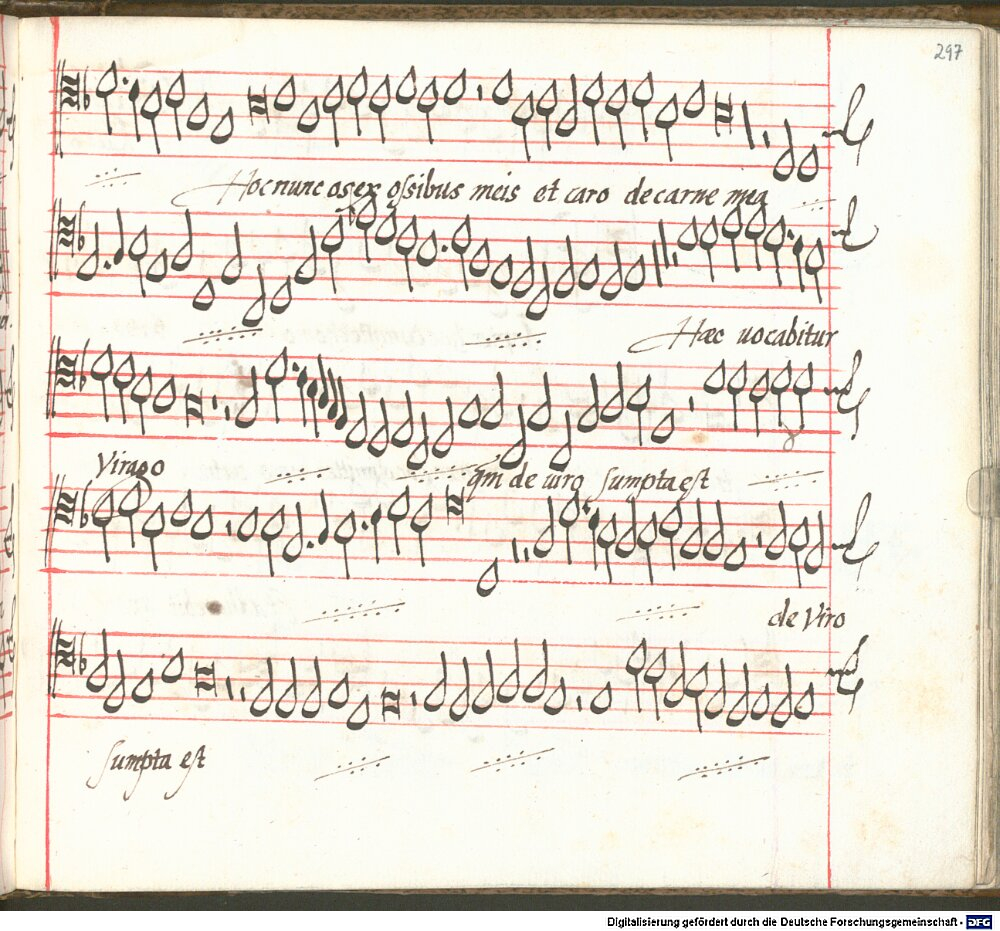 297
Hoc nunc os ex ossibus meis et caro de carne mea
Hæc uocabitur
Virago qm de uiro sumpta est
de Viro
sumpta est
Digitalisierung gefördert durch die Deutsche Forschungsgemeinschaft - DFG